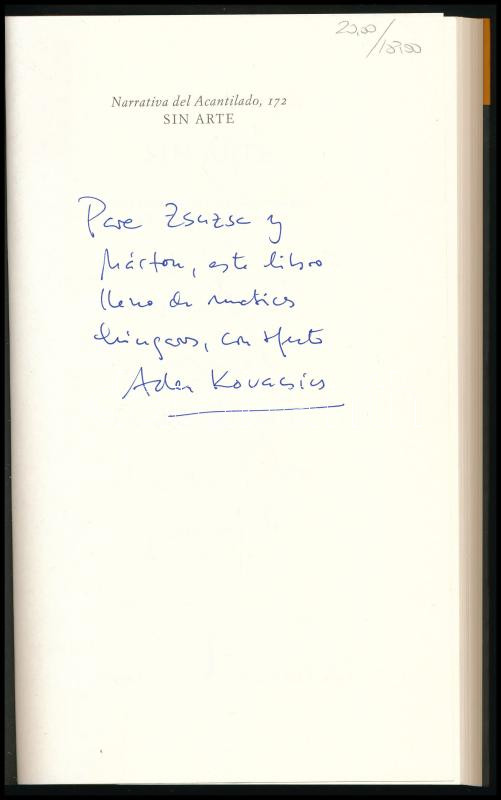 20,00/183,00
Narrativa del Acantilado, 172
SIN ARTE
Para Zsuzsa y
Márton, este libro
lleno de matices
húngaros, con afecto
Adan Kovacsics